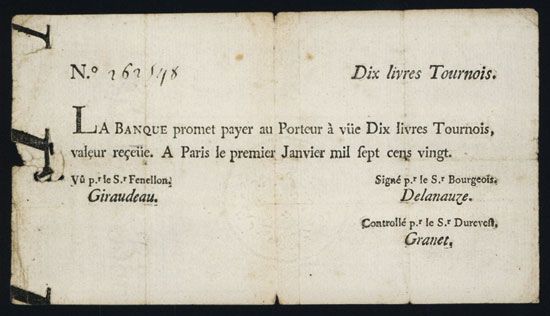 N.º 262548 Dix livres Tournois.
LA BANQUE promet payer au Porteur à vüe Dix livres Tournois,
valeur reçeüe. A Paris le premier Janvier mil ſept cens vingt.
Vû p.r le S.r Fenellon. Signé p.r le S.r Bourgeois.
Giraudeau. Delanauze.
Controllé p.r le S.r Durevest.
Granet.